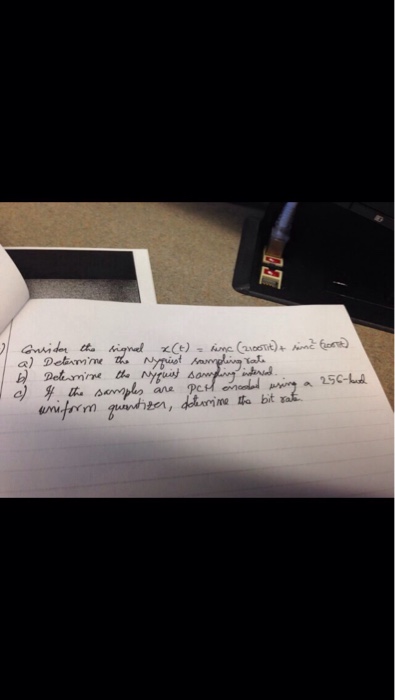 Consider the signal x(t) = sinc (2100πt) + sinc² (200πt)
a) Determine the Nyquist sampling rate
b) Determine the Nyquist sampling interval.
c) If the samples are PCM encoded using a 256-level
uniform quantizer, determine the bit rate.